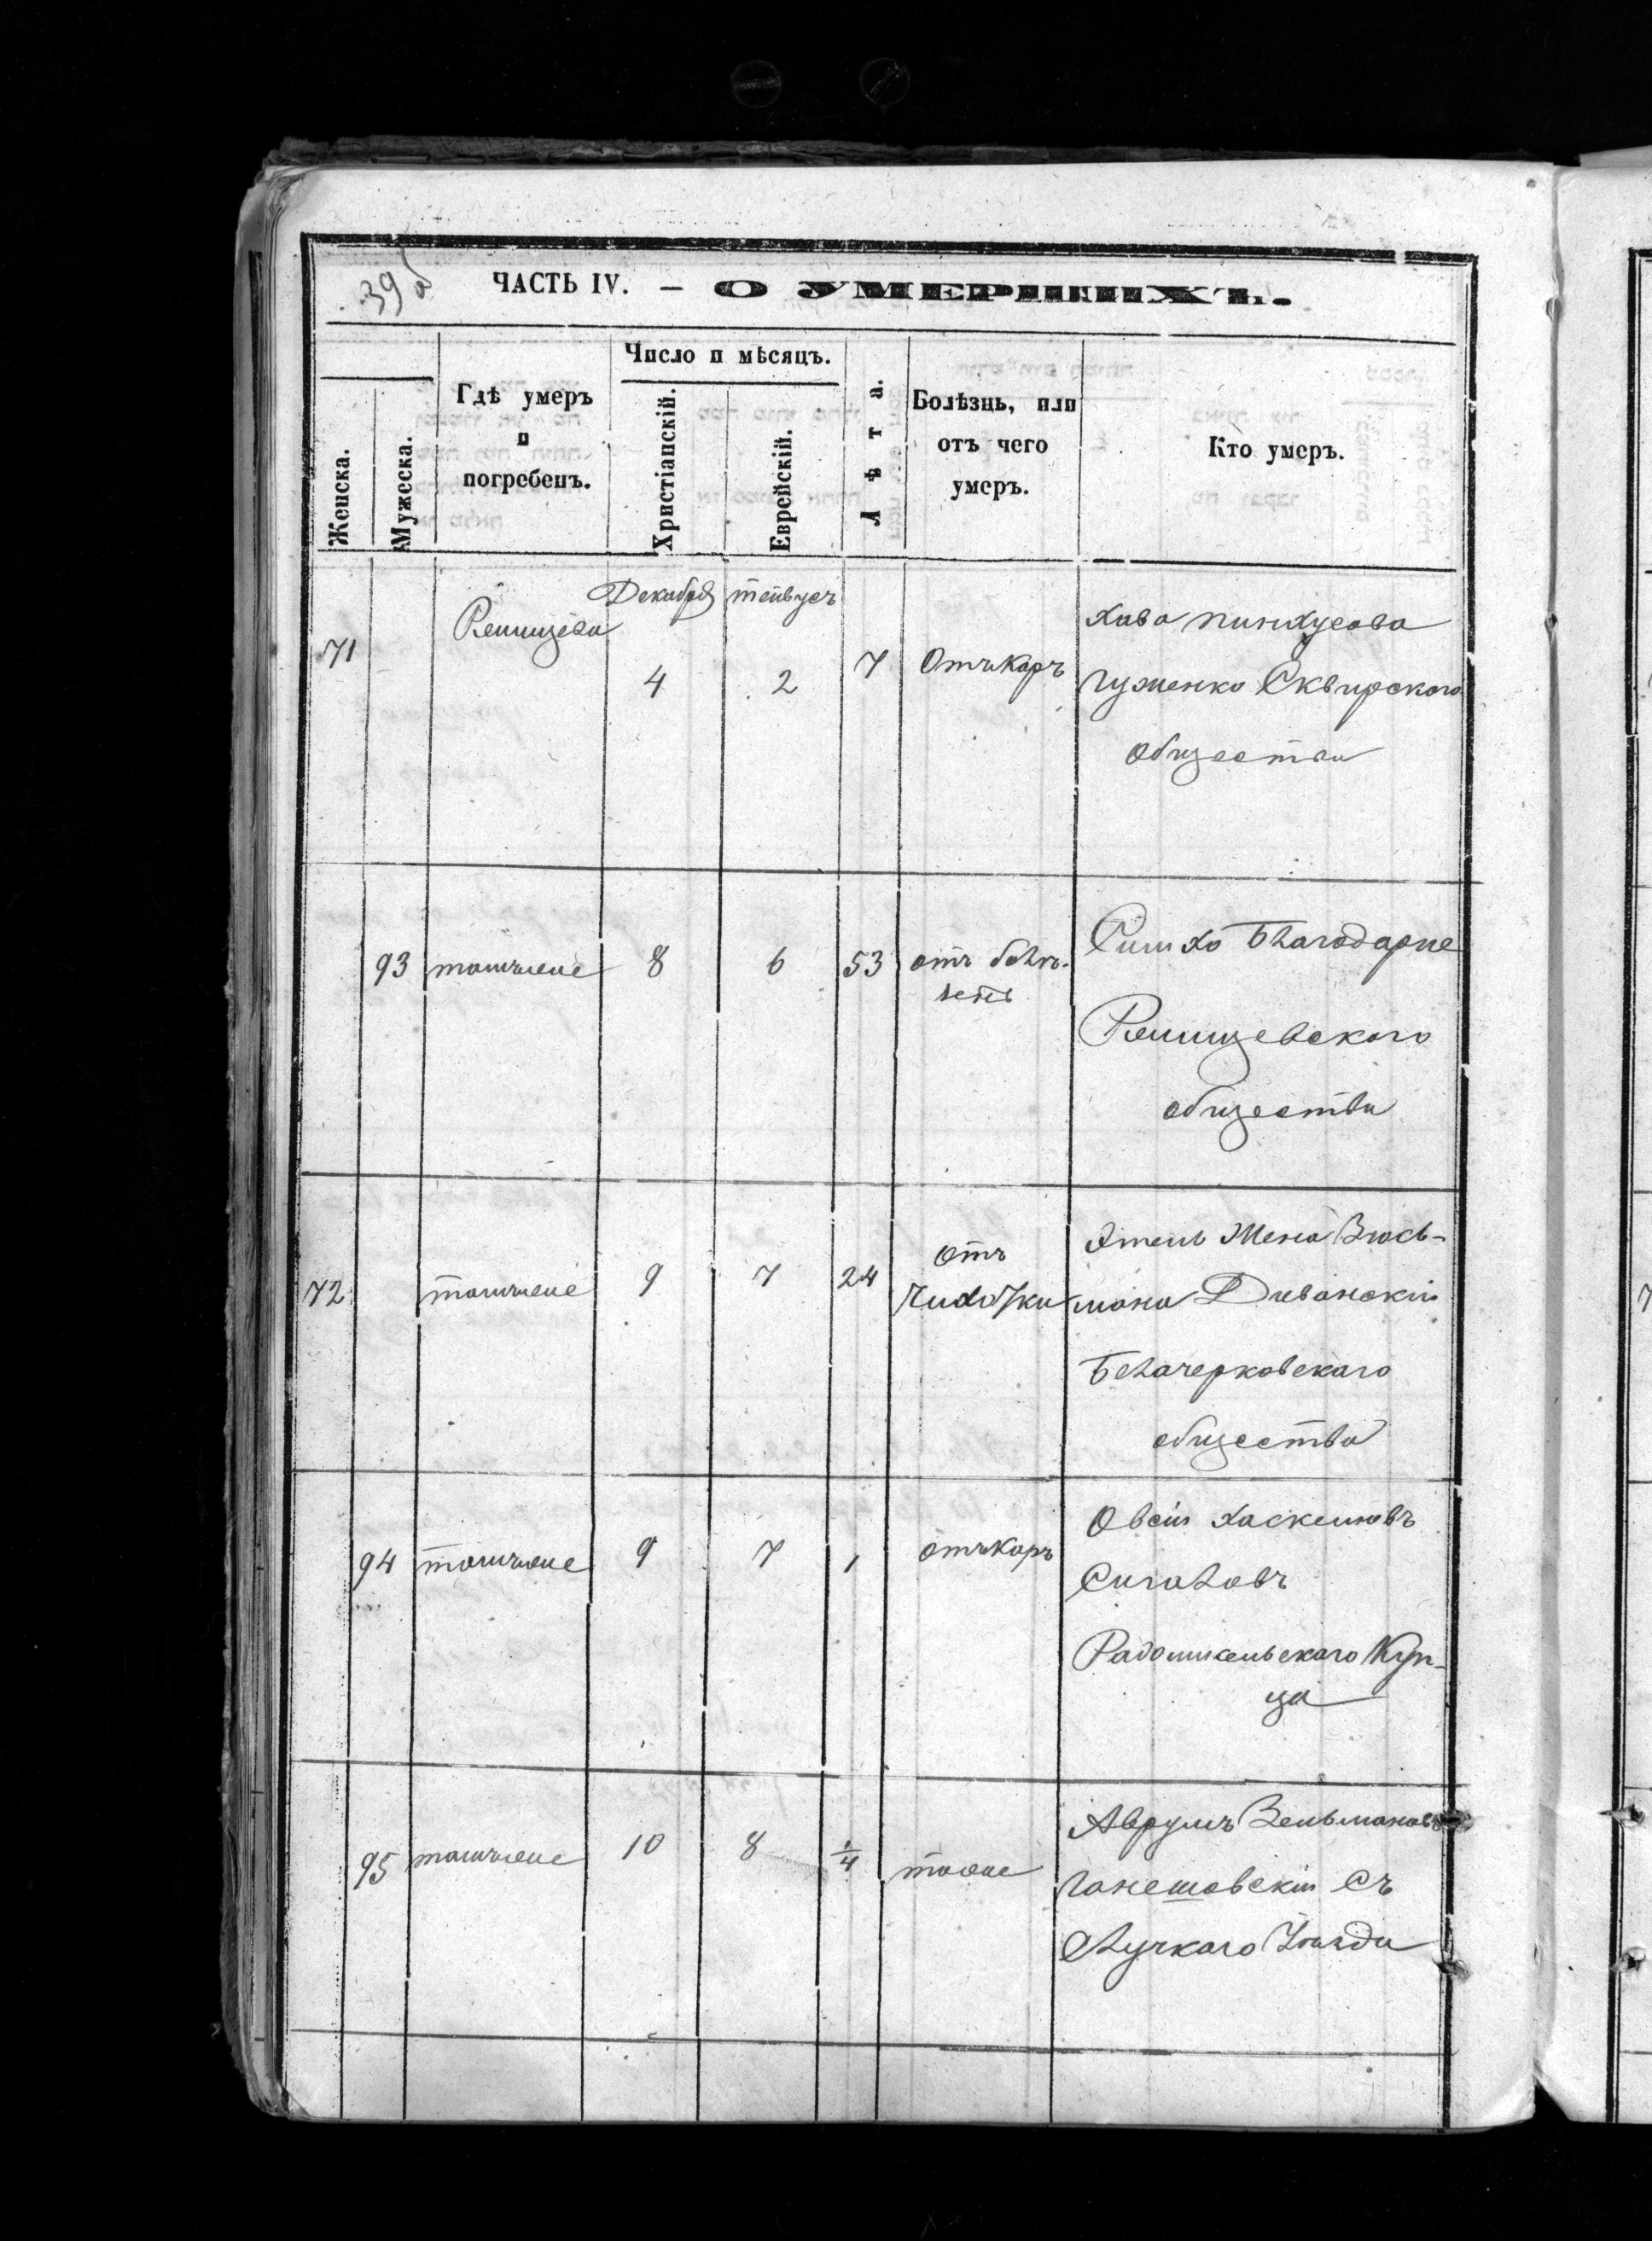 39об
ЧАСТЬ IV. — О УМЕРШИХЪ.
Женска.
Мужеска.
Гдѣ умеръ
и
погребенъ.
Число и мѣсяцъ.
Христіанскій.
Еврейскій.
Лѣта.
Болѣзнь, или
отъ чего
умеръ.
Кто умеръ.
Декабря
71
4
2
7
Отъ Коръ
Хава Пинхусова
Гуменко Сквирскаго
общества
93
тамъже
8
6
53
отъ
Симхо Благодарне
общества
72
тамъже
9
7
24
отъ
Этель Жена Зюсь-
мана Диванскій
Белачерковскаго
общества
94
тамъже
9
7
1
отъ Коръ
Овсій Хаскелювъ
Сигаловъ
Радомисельскаго Куп-
ца
95
тамъже
10
8
1/4
тоже
Аврумъ Зельмановъ
Ганешовскій съ
Луцкаго Уѣзда